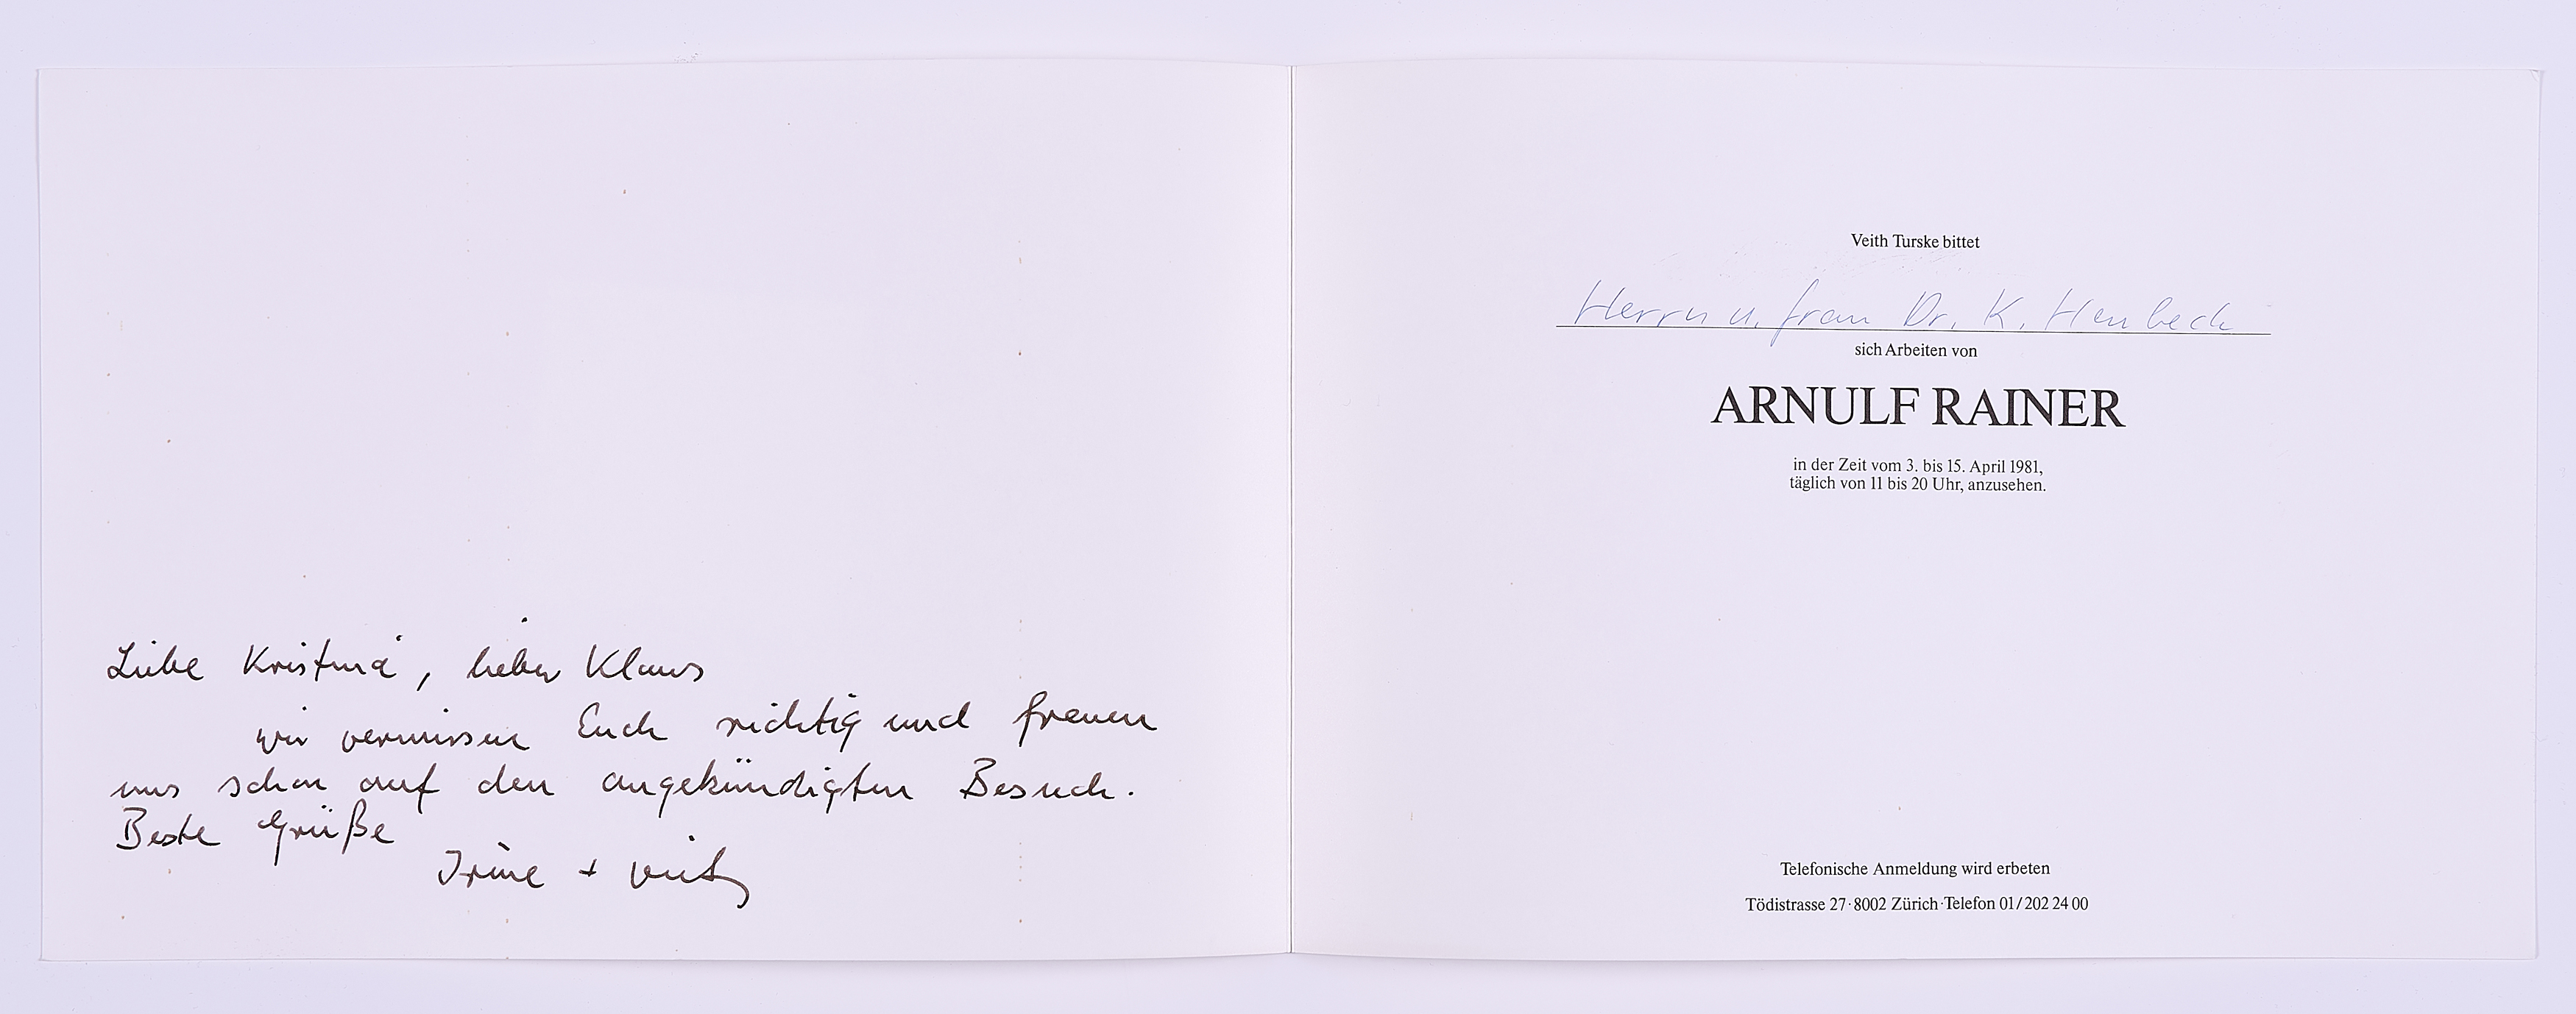 Liebe Kristina, lieber Klaus
wir vermissen Euch richtig und freuen
uns schon auf den angekündigten Besuch.
Beste Grüße
Irène + Veith
Veith Turske bittet
Herrn u. Frau Dr. K. Honbeck
sich Arbeiten von
ARNULF RAINER
in der Zeit vom 3. bis 15. April 1981,
täglich von 11 bis 20 Uhr, anzusehen.
Telefonische Anmeldung wird erbeten
Tödistrasse 27 · 8002 Zürich · Telefon 01/202 24 00